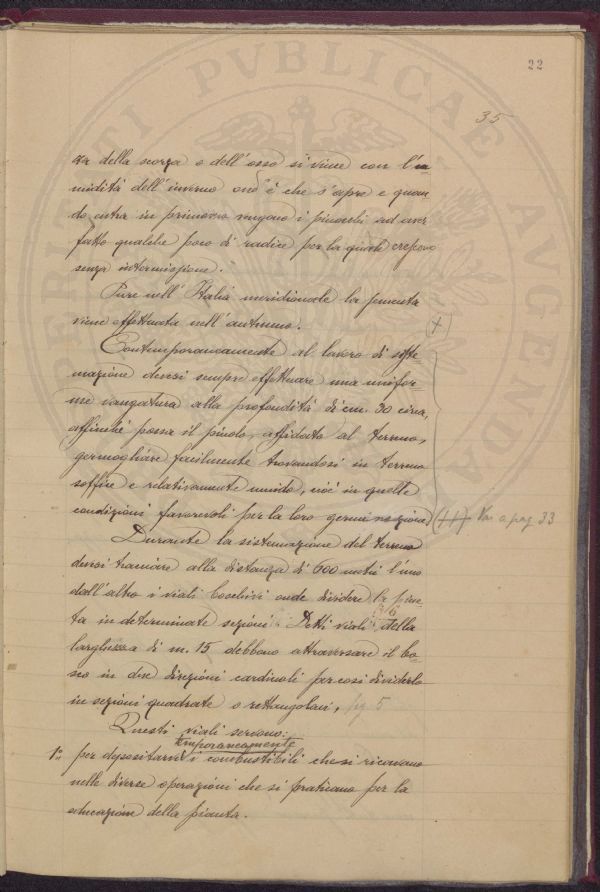 22
35
za della scorza o dell'osso si vince con l'u-
midità dell'inverno ond'è che s'apre e quan-
do entra in primavera vengono i pinocchi ad aver
fatto qualche poco di radice per la quale crepono
senza intermissione.
Pure nell'Italia meridionale la sementa
viene effettuata nell'autunno.
(+)
Contemporaneamente al lavoro di siste-
mazione devesi sempre effettuare una unifor-
me vangatura alla profondità di cm. 30 circa,
affinchè possa il pinolo, affidato al terreno,
germogliare facilmente trovandosi in terreno
soffice e relativamente umido, cioè in quelle
condizioni favorevoli per la loro germinazione. (++) Va a pag 33
Durante la sistemazione del terreno
devesi tracciare alla distanza di 600 metri l'uno
dall'altro i viali boschivi onde dividere la pine-
ta in determinate sezioni. Detti viali della
larghezza di m. 15 debbono attraversare il bo-
sco in due direzioni cardinali per così dividerlo
in sezioni quadrate o rettangolari, fig 5
Questi viali servono:
temporaneamente
1º per depositarvi i combustibili che si ricavano
nelle diverse operazioni che si praticano per la
educazione della pianta.
PERITI PVBLICAE